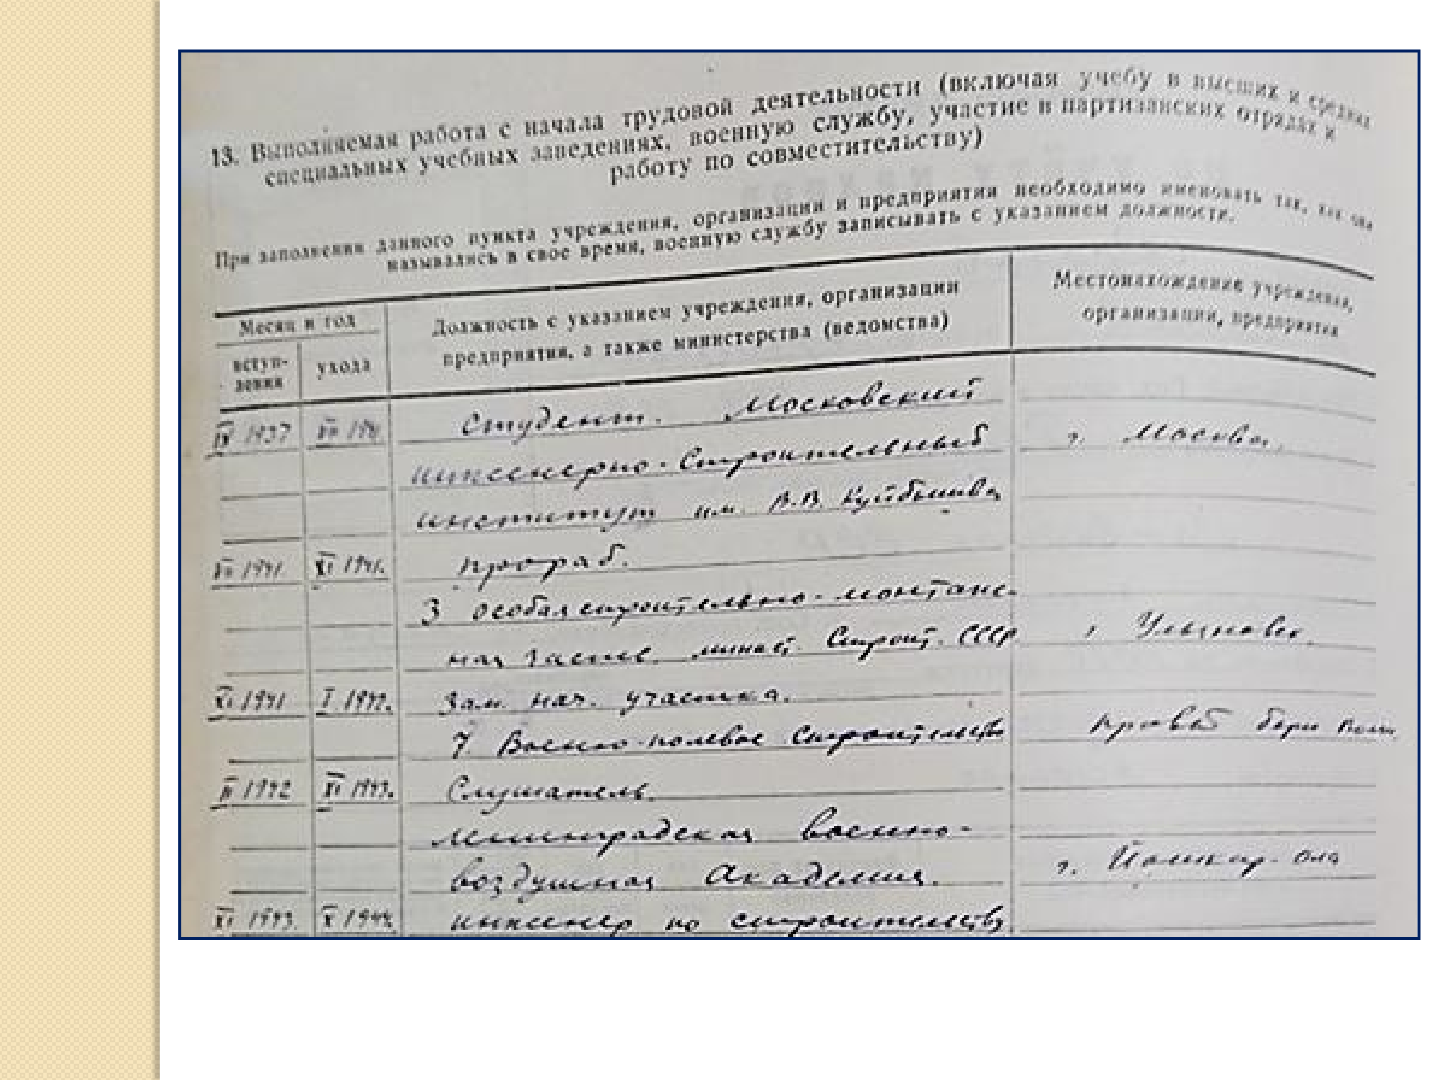 13. Выполняемая работа с начала трудовой деятельности (включая учебу в высших и средних
специальных учебных заведениях, военную службу, участие в партизанских отрядах и
работу по совместительству)
При заполнении данного пункта учреждения, организации и предприятия необходимо именовать так, как они
назывались в свое время, военную службу записывать с указанием должности.
Месяц и год
вступ-
ления
ухода
Должность с указанием учреждения, организации
предприятия, а также министерства (ведомства)
Местонахождение учреждения,
организации, предприятия
IX 1937 VII 1941 Студент. Московский
инженерно-строительный г. Москва,
институт им. В.В. Куйбышева
VII 1941 XI 1941. прораб.
3 особая строительно-монтаж-
ная минист. Строит. СССР г. Ульяновск.
XI 1941 I 1942. Зам. нач. участка.
7 Военно-полевое строительство правый берег
1942 XI 1943. Слушатель.
Ленинградская военно-
воздушная Академия. г. Йошкар-Ола
XI 1943. X 1944. инженер по строительству